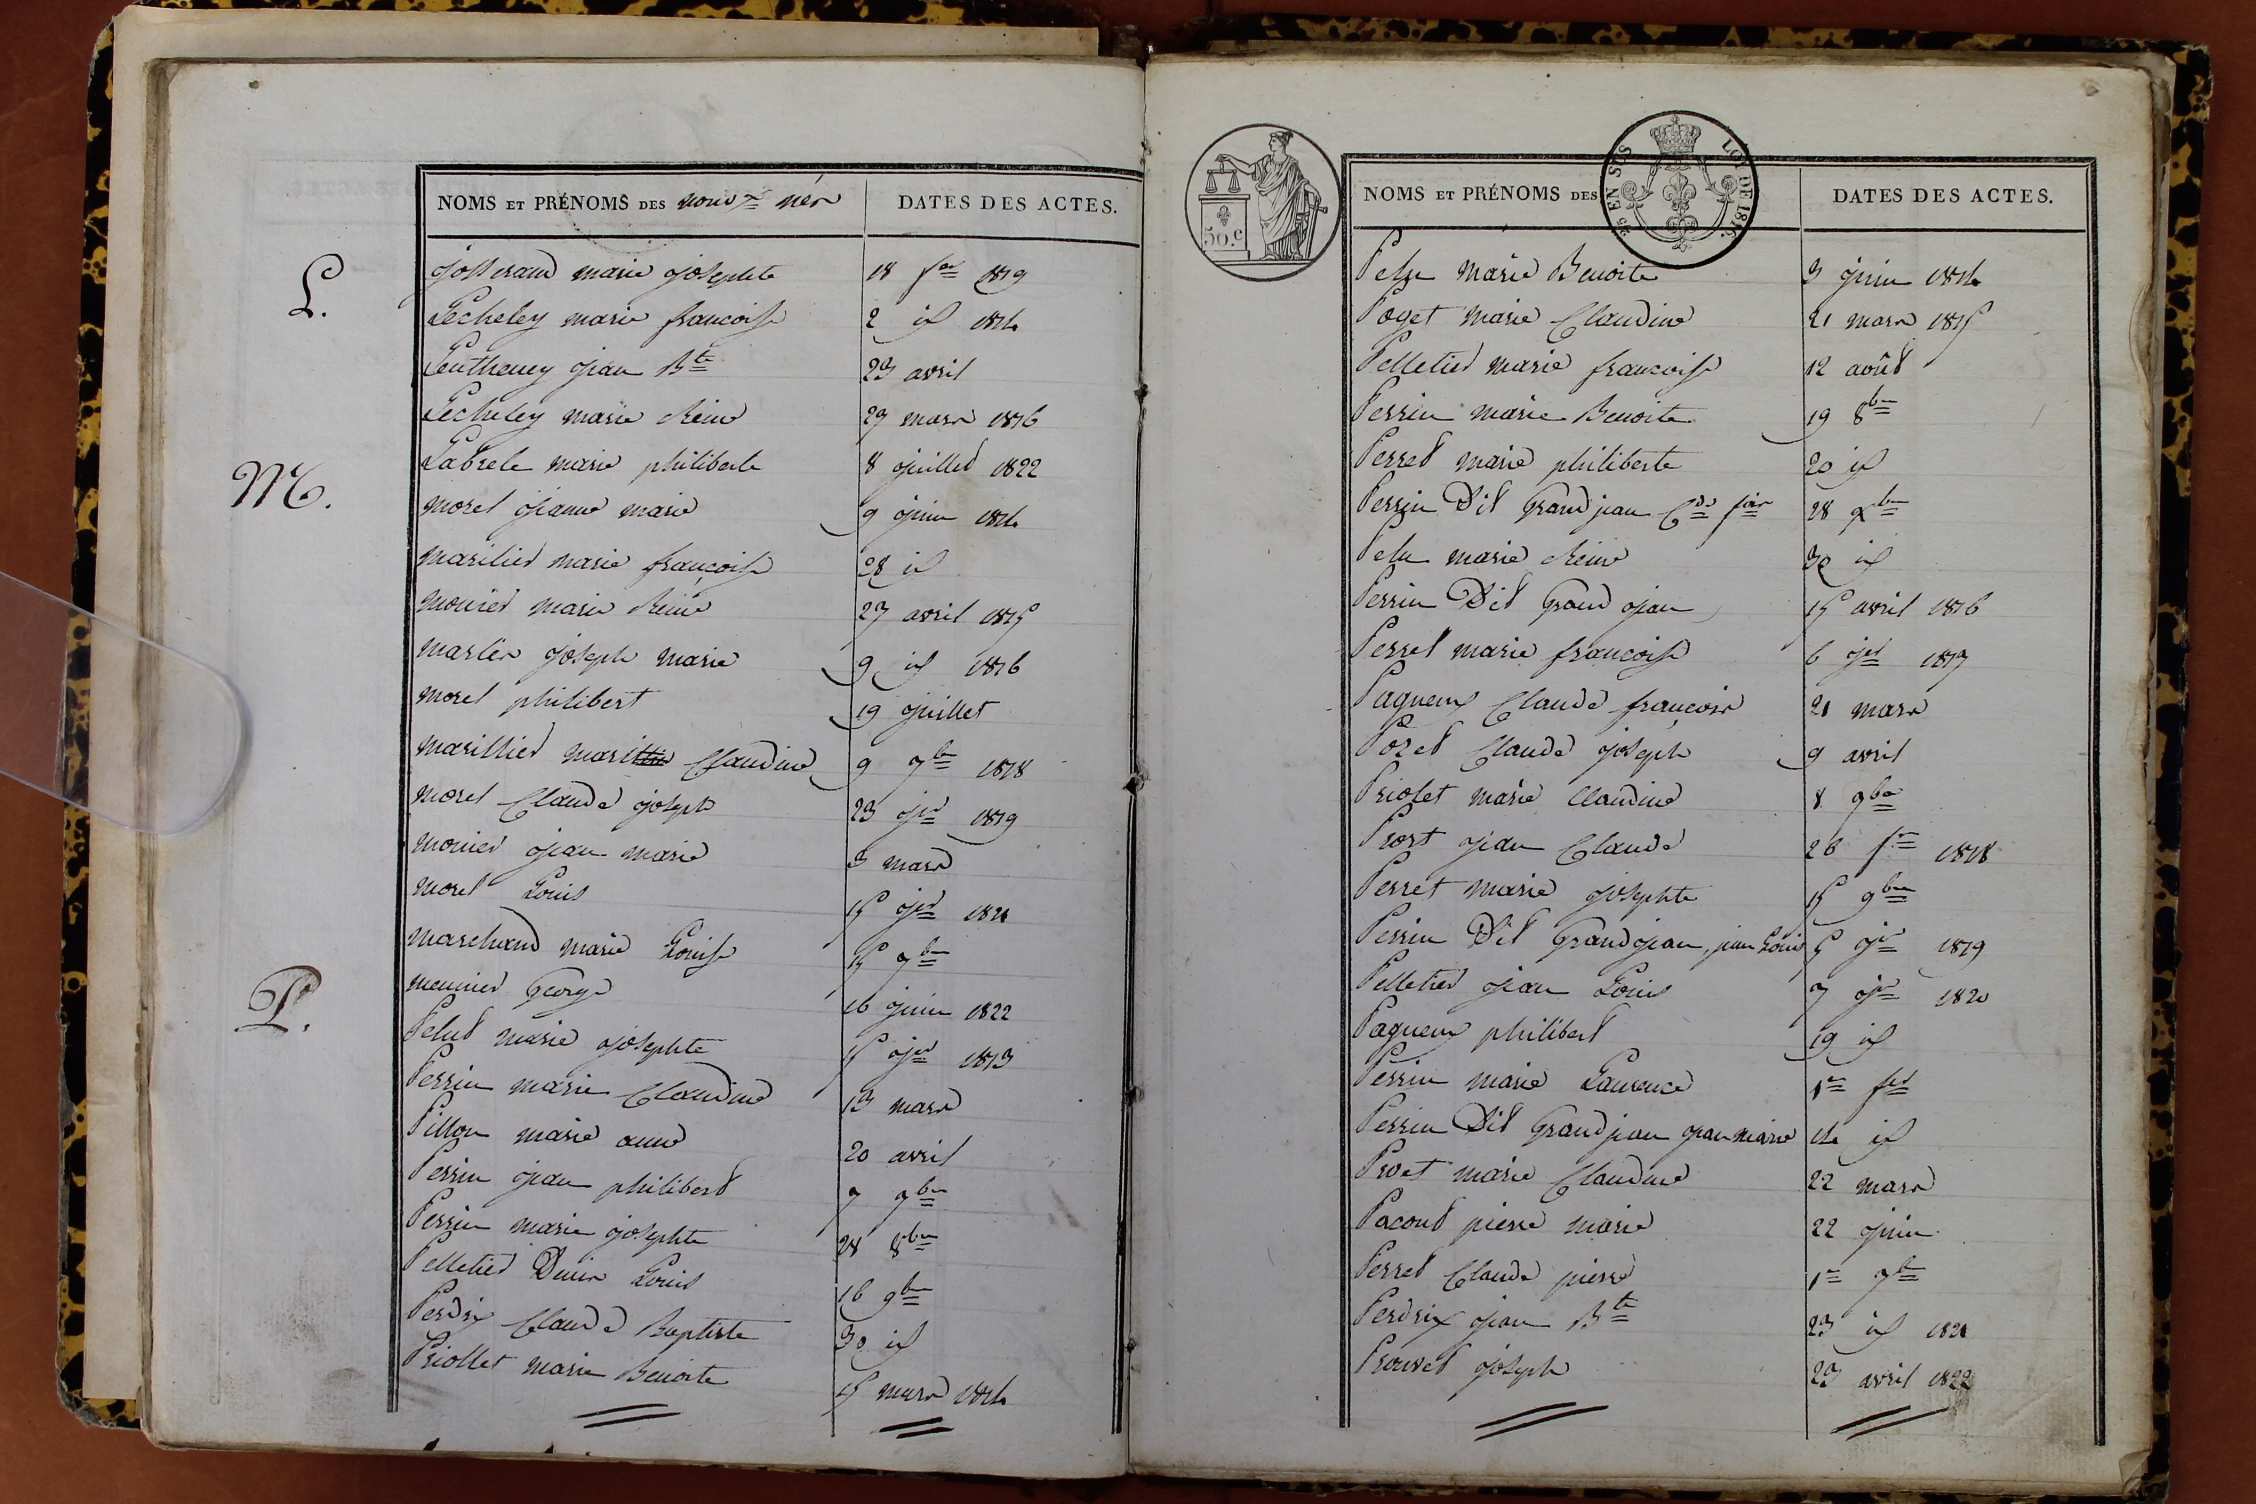 NOMS ET PRÉNOMS DES nouvx nés DATES DES ACTES.
josserand marie josephte 18 fer 1819
L.
Lecheley marie francoise 2 id 1814
Lentheney jean Bte 23 avril
Lecheley marie Reine 29 mars 1816
Labrele marie philiberte 8 juillet 1822
M.
morel jeanne marie 9 juin 1814
marilier marie françoise 28 id
monier marie Reine 27 avril 1815
martin joseph marie 9 id 1816
morel philibert 19 juillet
marillier marie Claudine 9 7b 1818
morel Claude joseph 23 jer 1819
monier jean marie 3 mars
morel Louis 15 jer 1821
marchand marie Louise 15 7bre
meunier George 16 juin 1822
P.
Pelut marie josephte 15 jer 1813
Perrin marie Claudine 13 mars
Pillon marie anne 20 avril
Perrin jean philibert 7 7bre
Perrin marie josephte 28 8bre
Pelletier Denis Louis 16 9bre
Perdrix Claude Baptiste 30 id
Priollet marie Benoite 15 mars 1814
50.C
25 EN SUS
LOI DE 1816.
NOMS ET PRÉNOMS DES DATES DES ACTES.
marie Benoite 3 juin 1814
Poget marie Claudine 21 mars 1815
Pelletier marie françoise 12 août
Perrin marie Benoite 19 8bre
Perret marie philiberte 20 id
Perrin Dit Grandjean Cde fois 28 xbre
marie Reine 30 id
Perrin Dit Grand jean 15 avril 1816
Perret marie francoise 6 jer 1817
Paqueux Claude françois 21 mars
Claude joseph 9 avril
Priolet marie Claudine 8 9bre
Prost jean Claude 26 fer 1818
Perret marie josephte 15 9bre
Perrin Dit Grandjean, jean Louis 5 jer 1819
Pelletier jean Louis 7 jer 1820
Paqueux philibert 19 id
Perrin marie Laurence 1er fer
Perrin Dit Grandjean jean marie 14 id
Prost marie Claudine 22 mars
Pacoud pierre marie 22 juin
Perret Claude pierre 1er 7b
Perdrix jean Bte 23 id 1821
Prouvet joseph 23 avril 1822